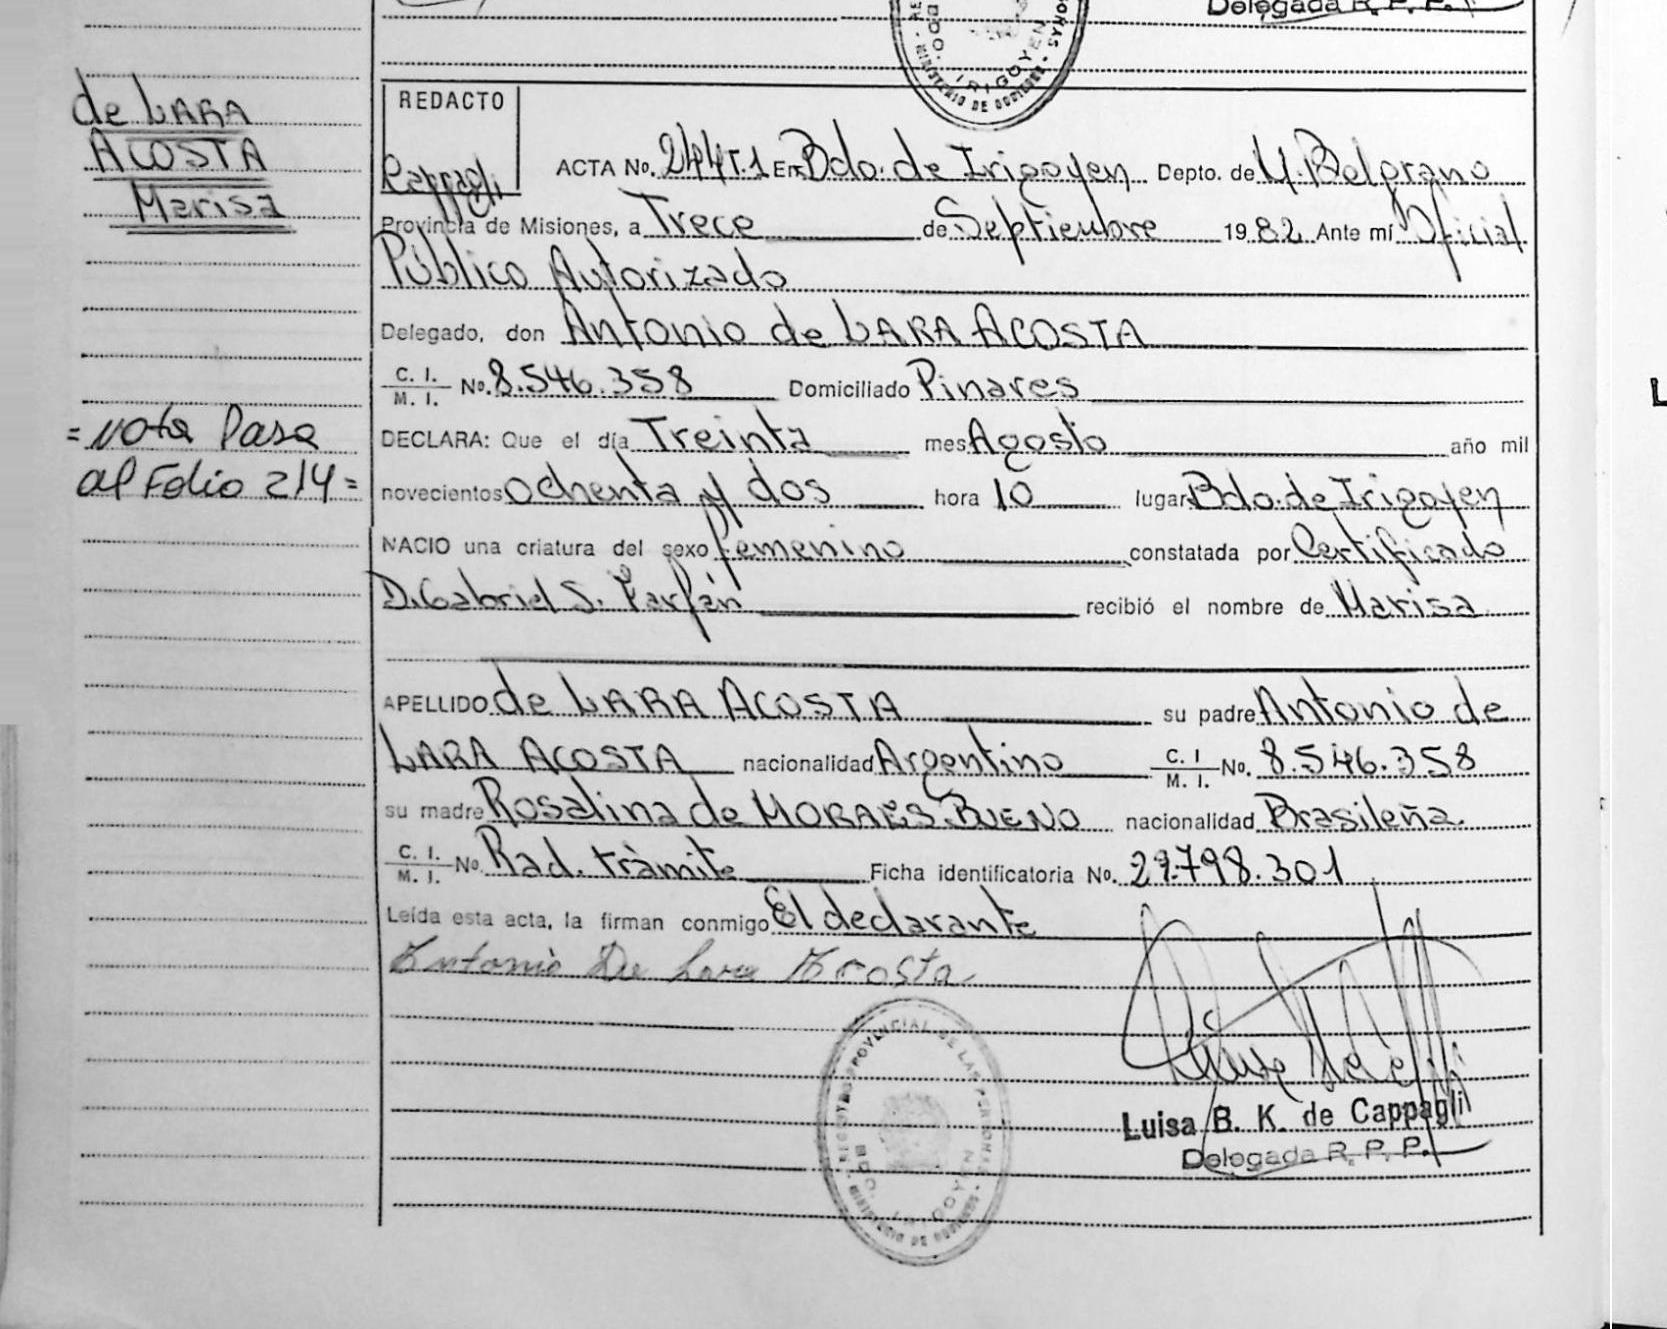 Delegada R. P. P.
IRIGOYEN
MINISTERIO DE GOBIERNO
de LARA
ACOSTA
Marisa
= Nota Pasa
al Folio 214 =
REDACTO
Cappagli
ACTA No. 244T.1 En Bdo. de Irigoyen Depto. de M. Belgrano
Provincia de Misiones, a Trece de Septiembre 1982 Ante mí Oficial
Público Autorizado
Delegado, don Antonio de LARA ACOSTA
C. I. / M. I. No. 8.546.358 Domiciliado Pinares
DECLARA: Que el día Treinta mes Agosto año mil
novecientos ochenta y dos hora 10 lugar Bdo. de Irigoyen
NACIO una criatura del sexo femenino constatada por Certificado
D. Gabriel S. Farfán recibió el nombre de Marisa
APELLIDO de LARA ACOSTA su padre Antonio de
LARA ACOSTA nacionalidad Argentino C. I / M. I. No. 8.546.358
su madre Rosalina de MORAES BUENO nacionalidad Brasileña.
C. I. / M. I. No. Rad. tràmite Ficha identificatoria No. 29.798.301
Leída esta acta, la firman conmigo El declarante
Antonio De Lara Acosta
PROVINCIAL DE LAS PERSONAS
BDO. IRIGOYEN
MINISTERIO DE GOBIERNO
Luisa B. K. de Cappagli
Delegada R. P. P.